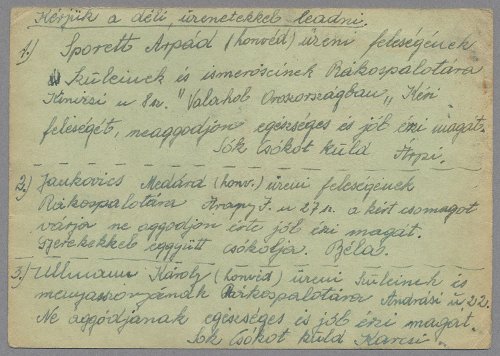 Kérjük a déli üzenetekkel leadni.
1.) Sporett Árpád (honvéd) üzeni feleségének
szüleinek és ismerőseinek Rákospalotára
u 8 sz. "Valahol Oroszországban" Kéri
feleségét, neaggodjon egészséges és jól érzi magát.
Sok csókot küld Árpi.
2.) Jankovics Medárd (honv.) üzeni feleségének
Rákospalotára Arany J. u 27 sz. a kért csomagot
várja ne aggodjon érte jól érzi magát.
Gyerekekkel eggyütt csókolja. Béla.
3.) Ullmann Károly (honvéd) üzeni szüleinek és
menyasszonyának Rákospalotára Andrási u 22.
Ne aggódjanak egészséges és jól érzi magát.
Sok csókot küld Karcsi.